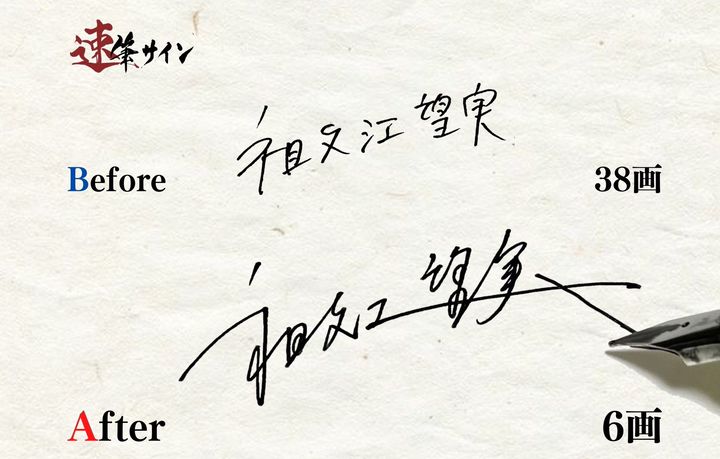 速筆サイン
祖父江 望実
Before 38画
祖父江 望実
After 6画